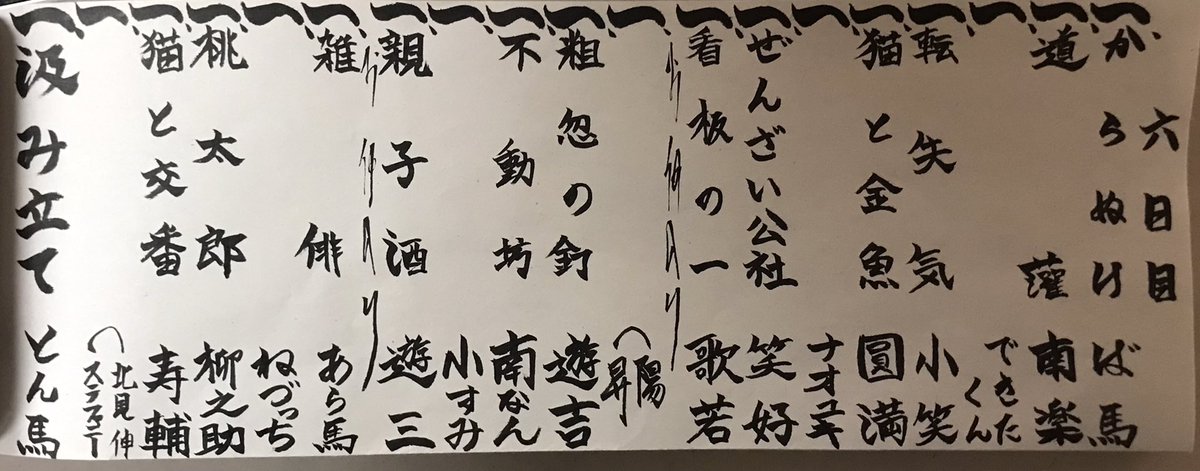 六日目
一、からぬけ ば馬
一、道灌 南楽
一、できたくん
一、転失気 小笑
一、猫と金魚 圓満
一、ナオユキ
一、ぜんざい公社 笑好
一、看板の一 歌若
お仲入り
(昇陽
一、粗忽の釘 遊吉
一、不動坊 南なん
一、小すみ
一、親子酒 遊三
お仲入り
一、雑俳 あら馬
一、ねづっち
一、桃太郎 柳之助
一、猫と交番 寿輔
一、(北見伸 ステファニー
一、汲み立て とん馬